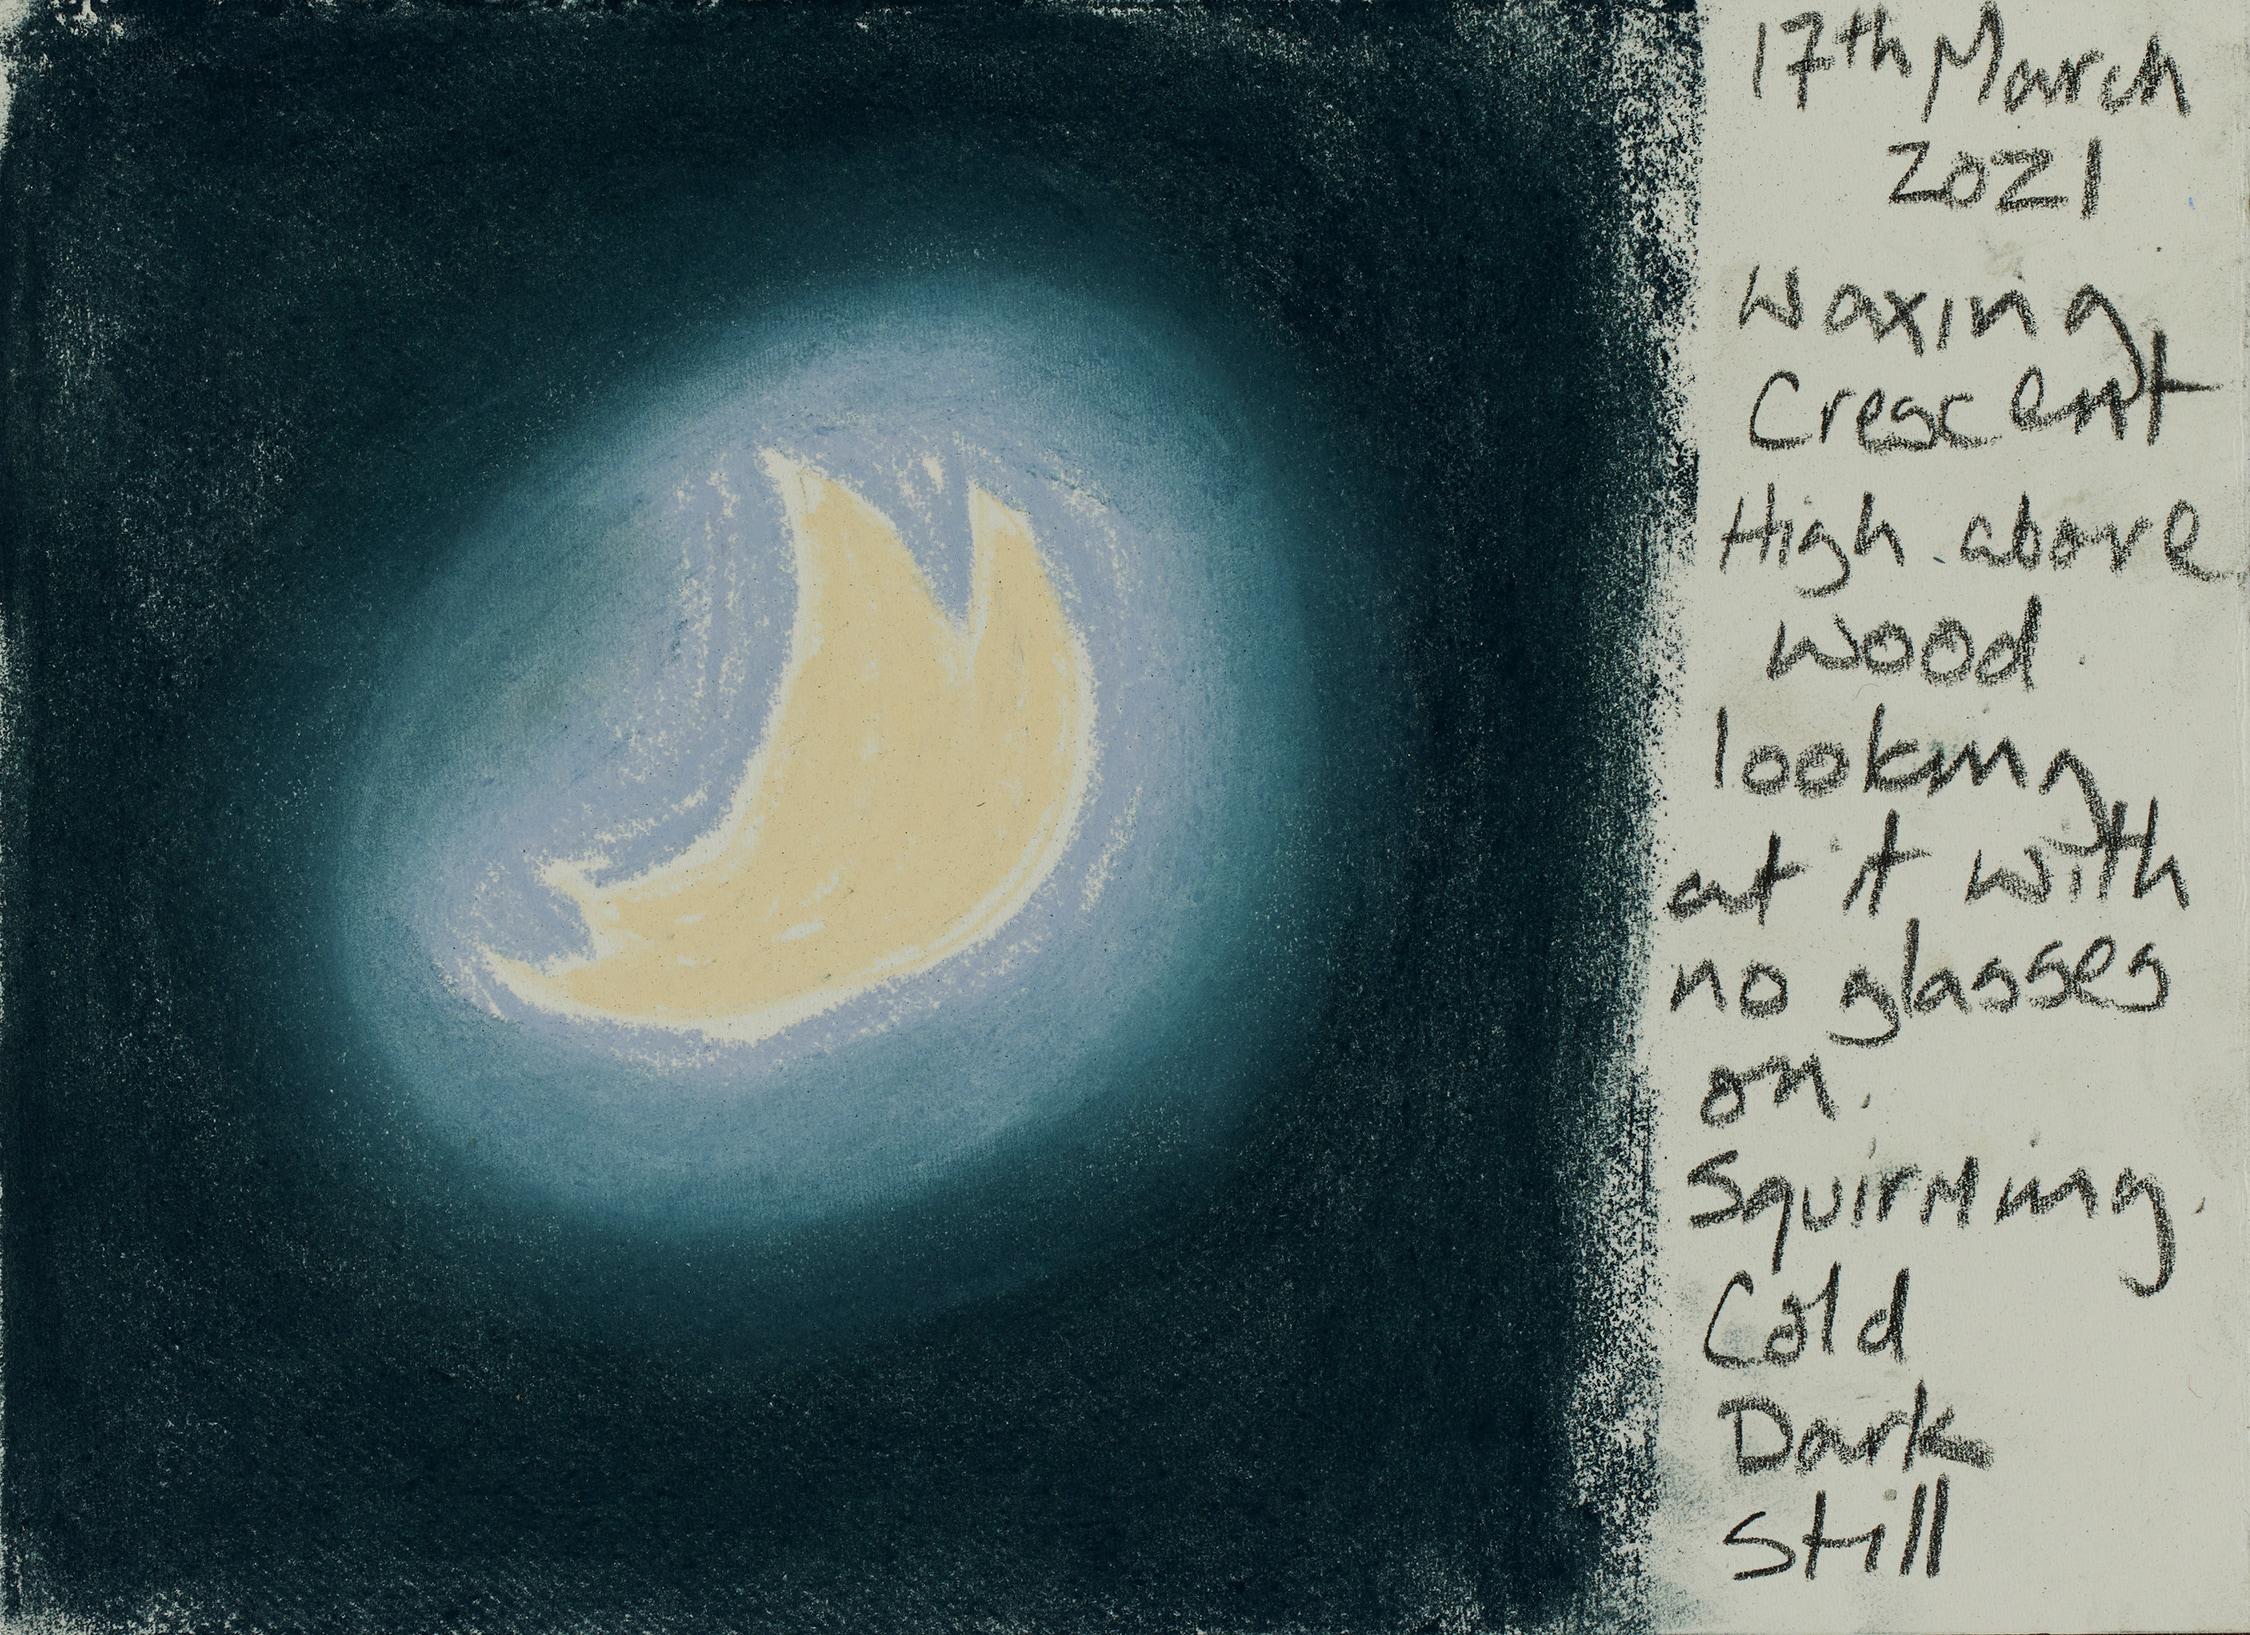 17th March
2021
Waxing
Crescent
High above
wood
looking
at it with
no glasses
on.
Squirming.
Cold
Dark
Still